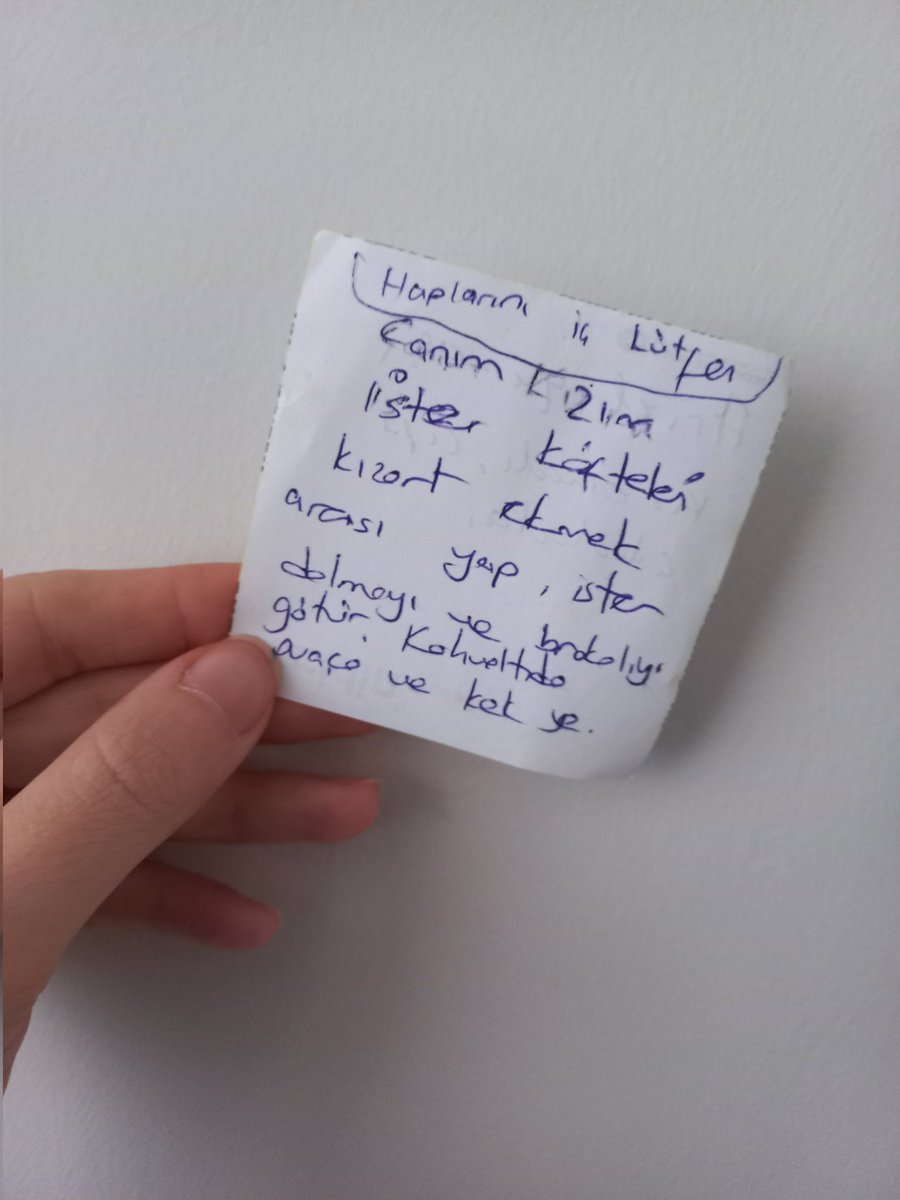 Haplarını iç Lütfen
Canım kızıma
İster köfteleri
kızart ekmek
arası yap, ister
dolmayı ve brokoliyi
götür Kahvaltıda
ve kek ye.